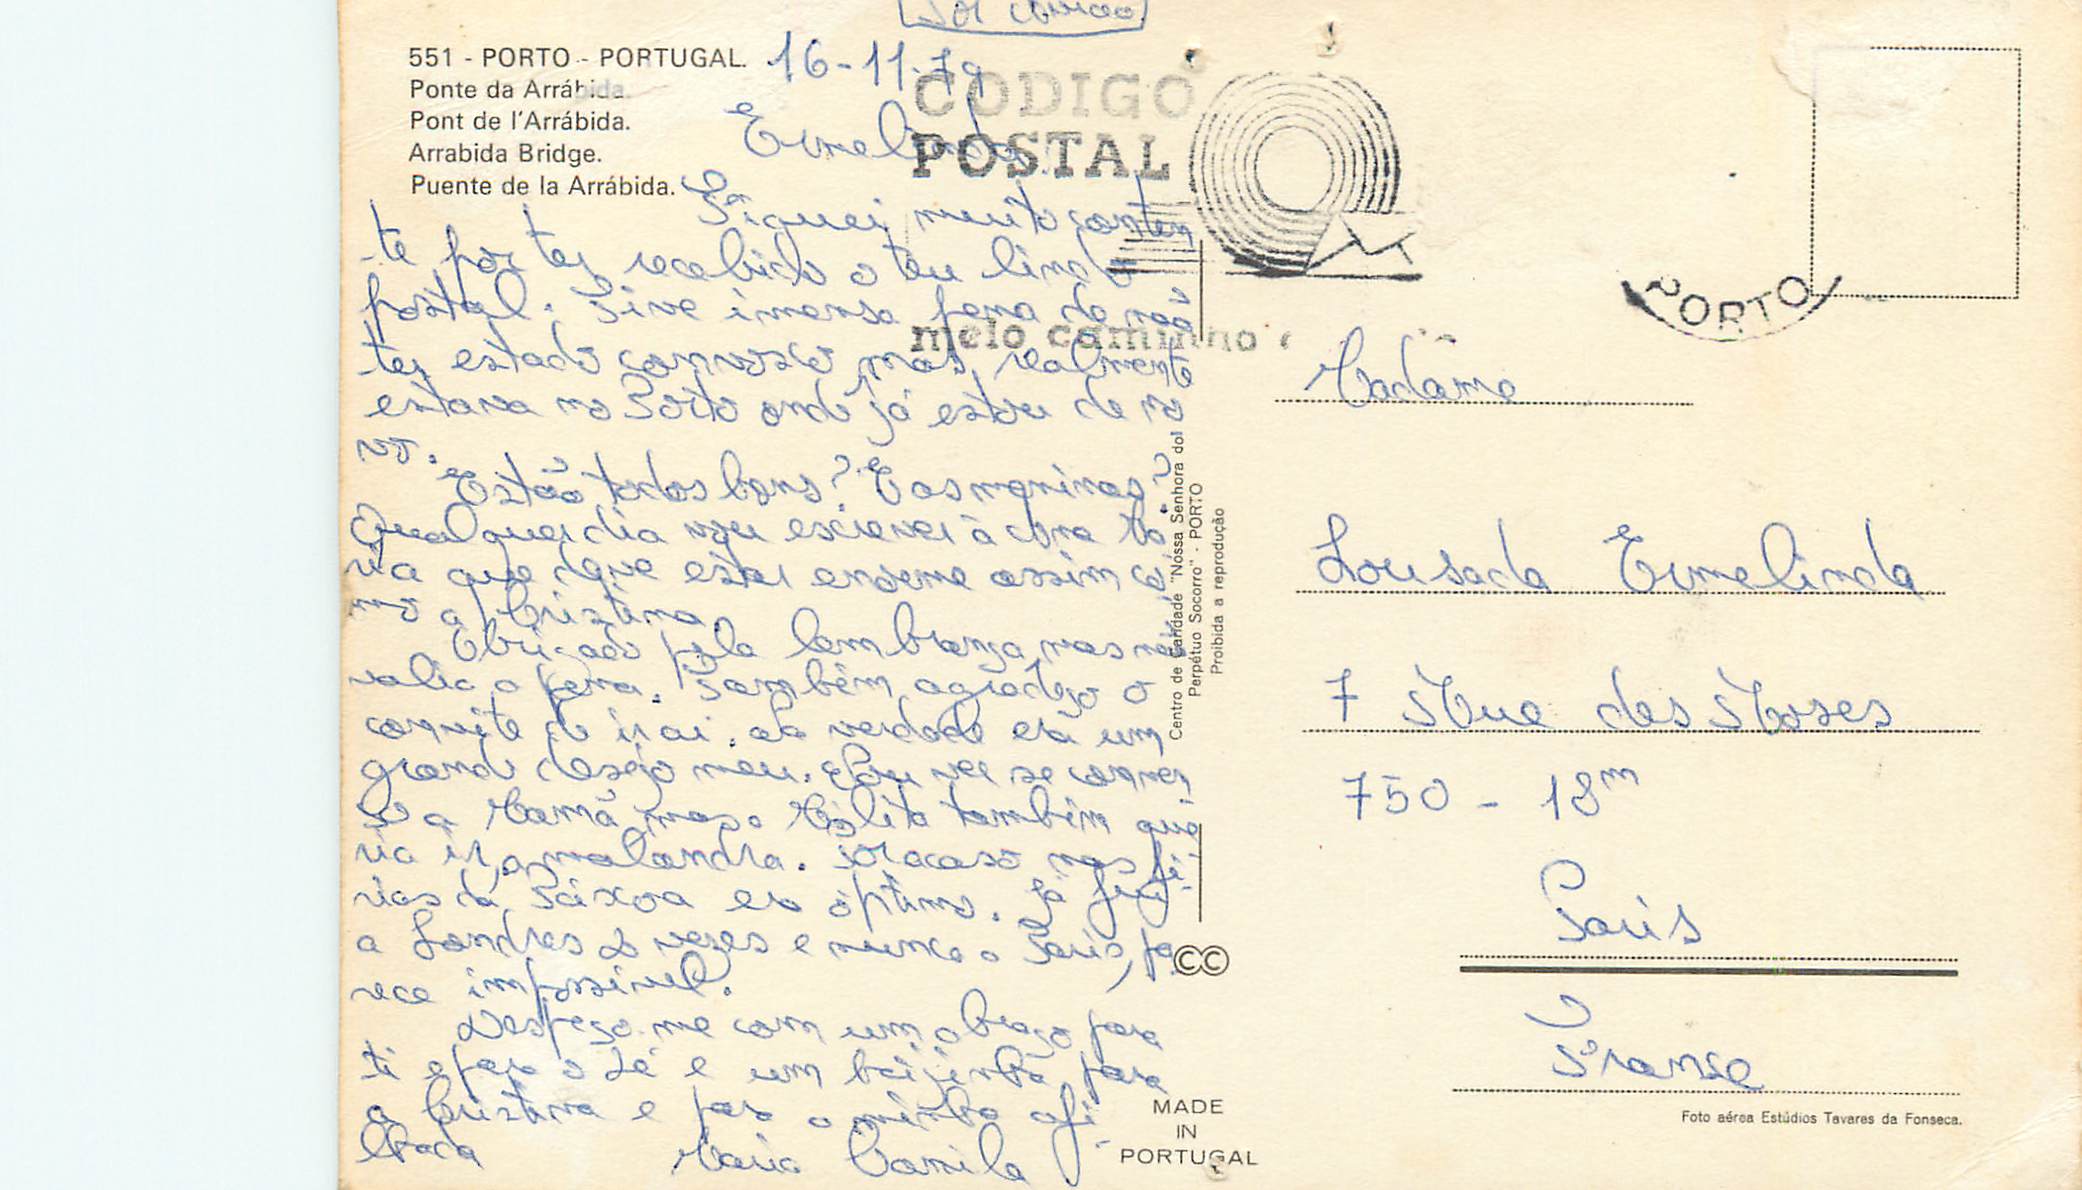 551 - PORTO - PORTUGAL.
Ponte da Arrábida.
Pont de l'Arrábida.
Arrabida Bridge.
Puente de la Arrábida.
16-11-79
Ermelinda
Fiquei muito conten
te por ter recebido o teu lindo
postal. Tive imensa pena de não
ter estado connosco mas, realmente
estava no Porto onde já estou de no
vo.
Estão todos bons? E as meninas?
Qualquer dia vou escrever à
ria que deve estar enorme assim co
mo a Cristina.
Obrigado pela lembrança mas não
valia a pena. Também agradeço o
convite de ir aí. Na verdade era um
grande desejo meu. Vou ver se conven
ço a Mamã mas a também que
ria ir, a malandra. Se acaso nas fé-
rias da Páscoa era óptimo. Já fui
a Londres 2 vezes e nunca a Paris, pa
rece impossível.
Despeço-me com um abraço para
ti e para o Zé e um beijinho para
a Cristina e para a minha afi-
lhada
Maria Camila
CODIGO
POSTAL
meio caminho
PORTO
Madame
Lousada Ermelinda
7 Rue des Roses
750 - 18m
Paris
France
Centro de Caridade "Nossa Senhora do
Perpétuo Socorro" - PORTO
Proibida a reprodução
CC
MADE
IN
PORTUGAL
Foto aérea Estúdios Tavares da Fonseca.